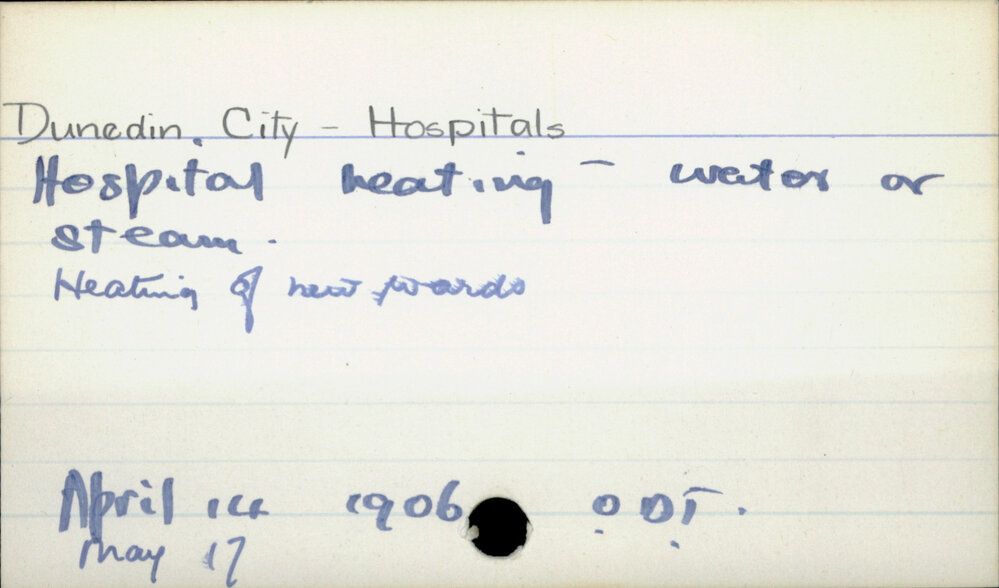 Dunedin. City - Hospitals
Hospital heating - water or
steam.
Heating of new wards
April 14 1906 O.D.T.
May 17